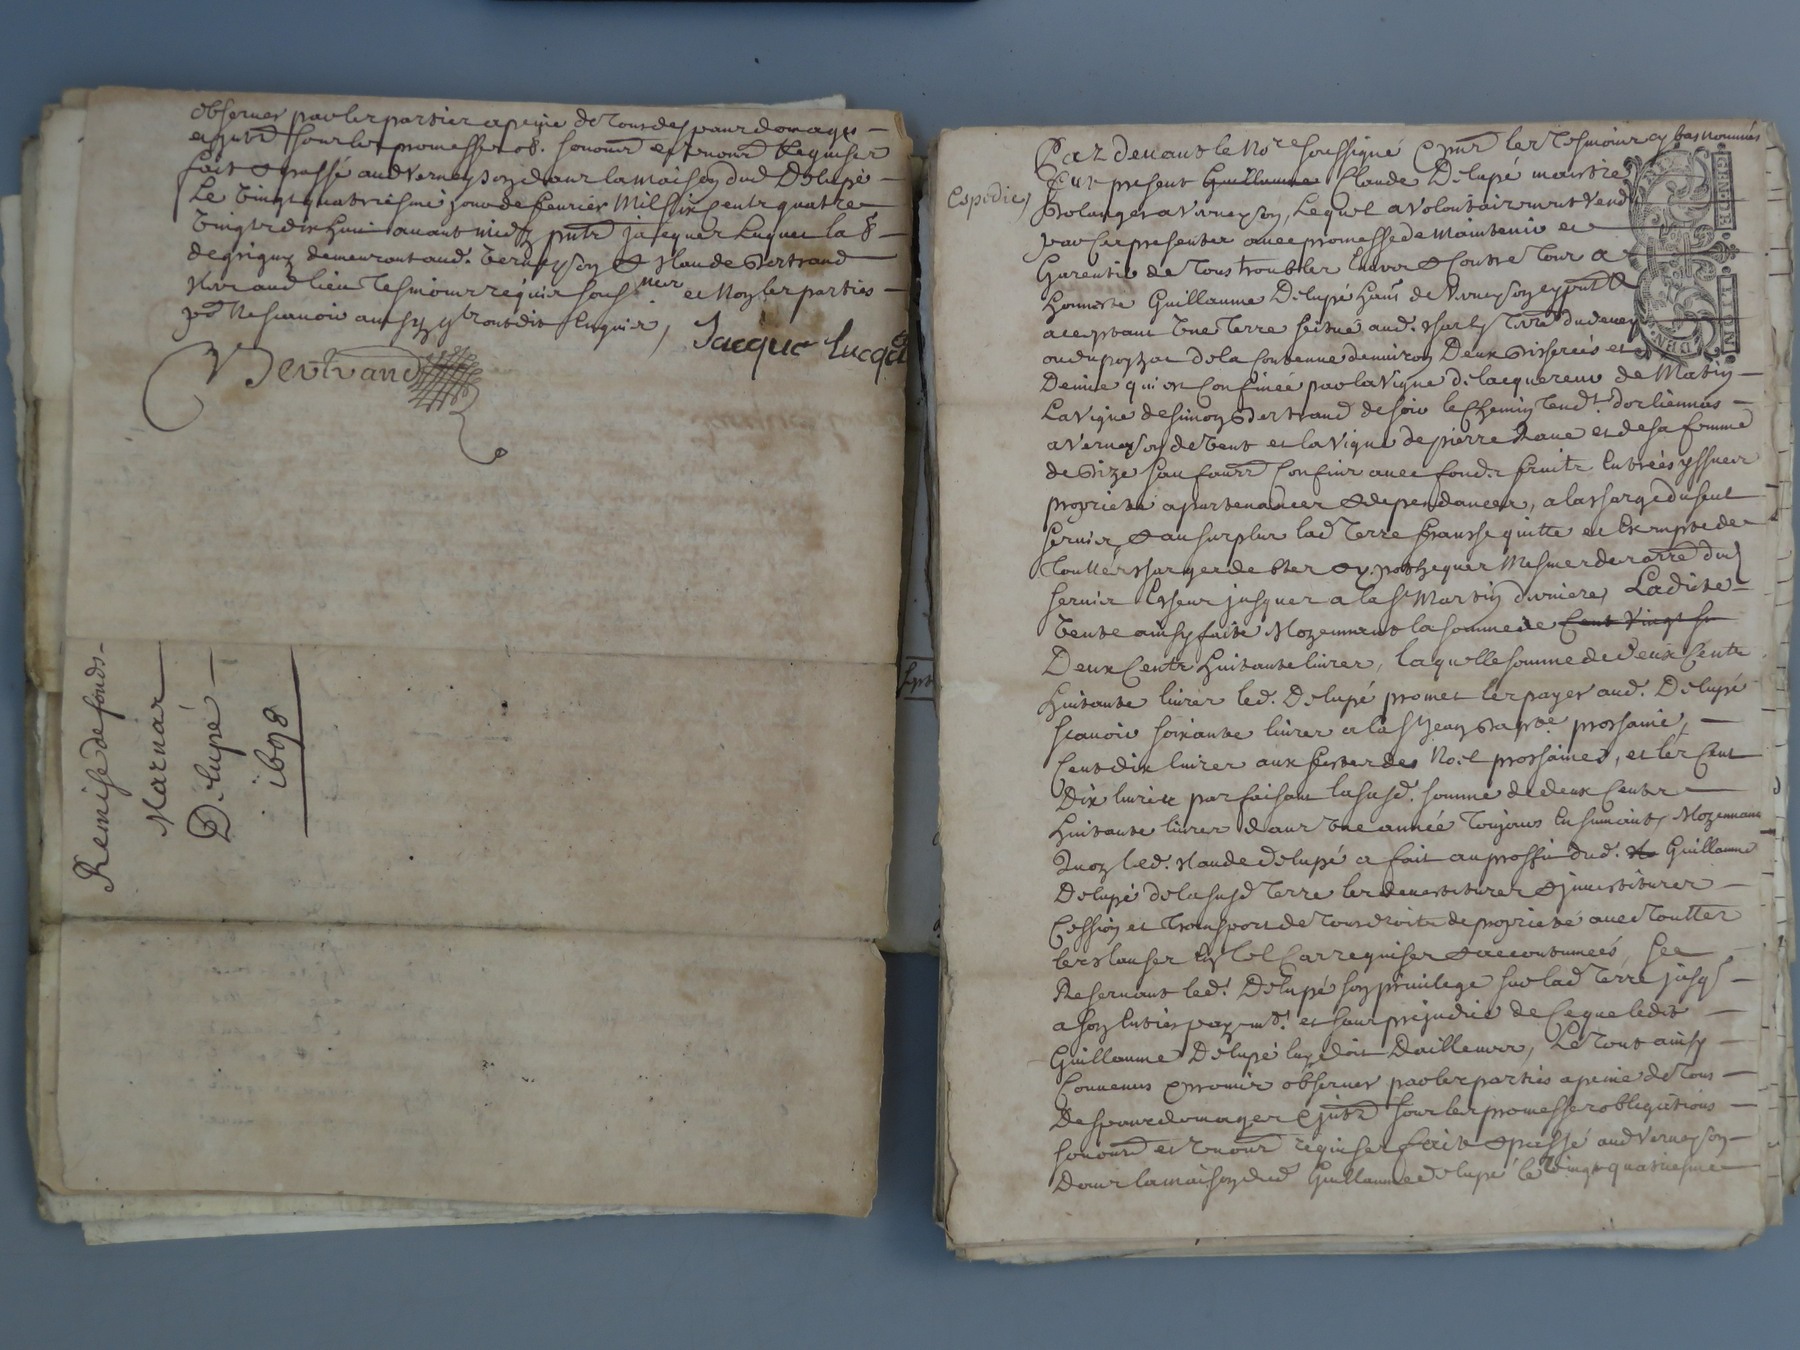 observer par les parties a peine de tous despans domages
et jntz sous les promesses ob. soubmns et renons requises
fait et passé aud Verneyson dans la maison dud Delupé
Le vingt quatriesme jour de fevrier Mil six cents quatre
vingts dix huit avant midy pntz jacques Luquet la^r
de grigny demeurant aud. Verneyson & Claude Bertrand
aud lieu tesmoins requis sous^nez et Non les parties
po^r Ne sçavoir ainsy qu'ont dit Enquis,
Jacque lucqet
Bertrand
Remise de fonds
Marnas
Delupé
1698
Espedié
Par devant le No^re soussigné & pntz les tesmoins cy bas nommés
fut present Guillaume Claude Delupé maistre
Bolanger a Verneyson, Lequel a volontairement vend
par ses presentes avec promesse de Maintenir et
Garentir de tous troubles Envers & Contre tous a
honneste Guillaume Delupé hant de Verneyson cy pnt &
aceptant Une Terre scituée aud.
de la Contenue denviron Deux Bisserées et
Demie qui se Confinée par la vigne de lacquereur de Matin
La vigne de simon Bertrand de soir le Chemin tend^t. dorliennas
a Verneyson de vent et la vigne de pierre et de sa femme
de Bize sauf ses Confins avec fonds fruits Entrées yssues
proprietés apartenances & dependances, a la charge du sent
servis, & au surplus lad Terre franche quitte et Exempte de
Touttes charges debtes & ypotheques Mesmes des arre dud
servis Escheus jusques a la S^t Martin derniere, Ladite
vente ainsy faite Moyennant la somme de Cent vingt
Deux Cents huitante livres, laquelle somme de deux Cents
huitante livres led. Delupé promet les payer aud. Delupé
scavoir soixante livres a la S^t Jean Bap^te prochaine,
Cent dix livres aux festes des Noel prochaines, et les Cent
Dix livres parfaisant la susd. somme de deux Cents
huitante livres dans une année Toujours En suivant, Moyennant
quoy led. Claude Delupé a fait au proffit dud. Guillaume
Delupé de la susd Terre les devestitures & jnvestitures
Cession et Transport de Tous droits de proprieté avec Touttes
les clauses En tel Cas requises & accoutumées, se
Reservant led. Delupé son privilege sur lad Terre jusq^s
a son Entier paym^t. et sans prejudice de Ce que ledit
Guillaume Delupé luy doit Dailleurs, Le Tout ainsy
Convenus & promis observer par les parties a peine de Tous
Despans domages & jntz sous les promesses obligations
soubmns et renons requises fait & passé aud Verneyson
Dans la maison dud Guillaume Delupé le vingt quatriesme